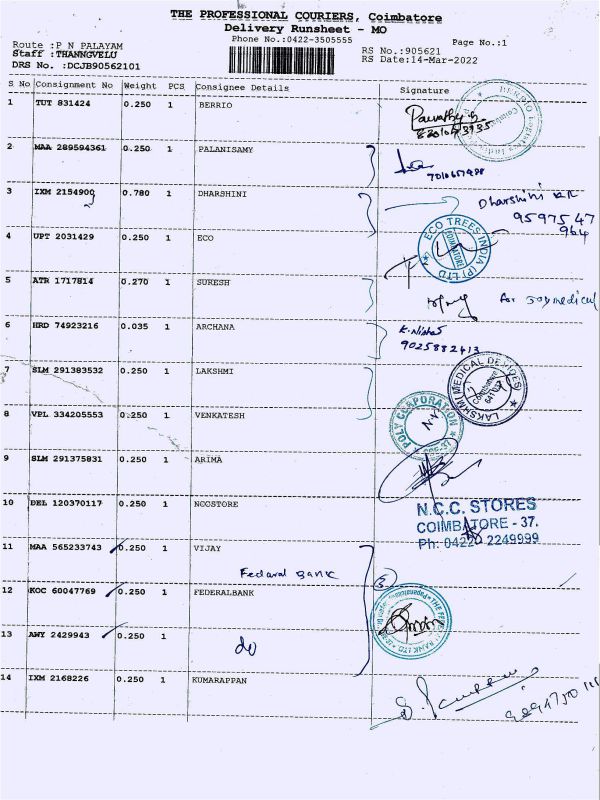 THE PROFESSIONAL COURIERS, Coimbatore
Delivery Runsheet - MO
Phone No.:0422-3505555
Page No.:1
Route :P N PALAYAM
Staff :THANNGVELU
DRS No. :DCJB90562101
RS No.:905621
RS Date:14-Mar-2022
S No Consignment No Weight PCS Consignee Details Signature
1 TUT 831424 0.250 1 BERRIO
2 MAA 289594361 0.250 1 PALANISAMY
7010657488
3 IXM 2154900 0.780 1 DHARSHINI
Dharshini
95975 47
964
4 UPT 2031429 0.250 1 ECO
ECO TREES INDIA (P) LTD
COIMBATORE
5 ATR 1717814 0.270 1 SURESH
for Joymedical
6 HRD 74923216 0.035 1 ARCHANA
9025882413
7 SLM 291383532 0.250 1 LAKSHMI
LAKSHMI MEDICAL DEVICES
8 VPL 334205553 0.250 1 VENKATESH
9 SLM 291375831 0.250 1 ARIMA
10 DEL 120370117 0.250 1 NCCSTORE
N.C.C. STORES
COIMBATORE - 37.
Ph: 0422- 2249999
11 MAA 565233743 0.250 1 VIJAY
Federal BANK
12 KOC 60047769 0.250 1 FEDERALBANK
3
13 AWY 2429943 0.250 1
do
14 IXM 2168226 0.250 1 KUMARAPPAN